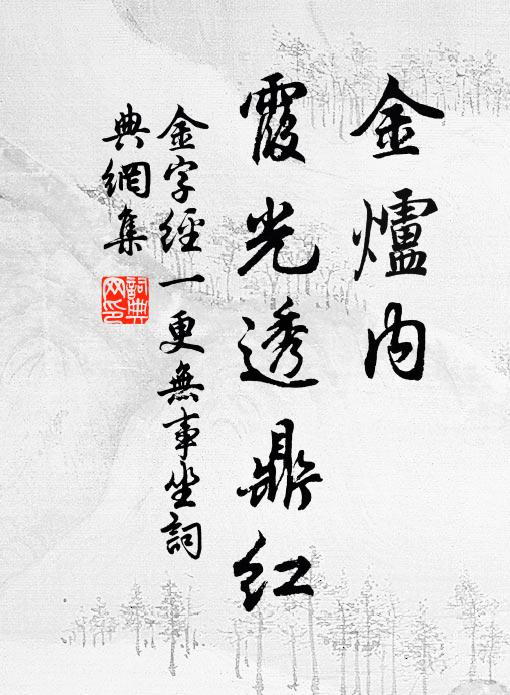 金爐内
霞光透鼎紅
金字經一更無事坐詞
典網集
詞典
网印